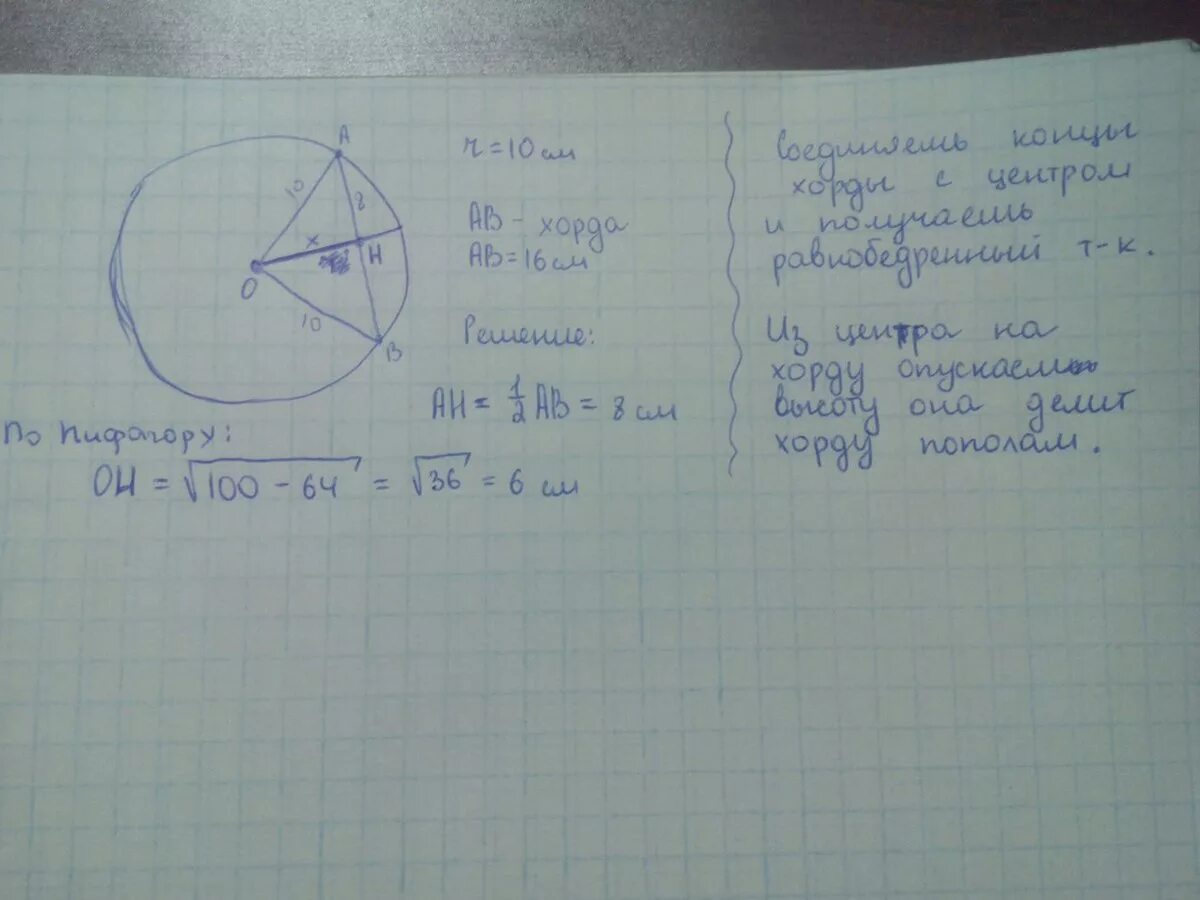 A
10
8
x
H
O
10
B
r = 10 см
AB - хорда
AB = 16 см
Решение:
AH = 1/2 AB = 8 см
По Пифагору:
OH = √100 - 64 = √36 = 6 см
Соединяешь концы
хорды с центром
и получаешь
равнобедренный т-к.
Из центра на
хорду опускаем
высоту она делит
хорду пополам.